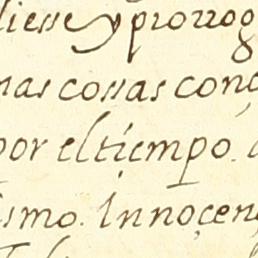 diesse y prorrog
mas cossas conç
por el tiempo.
ismo. Innoçen